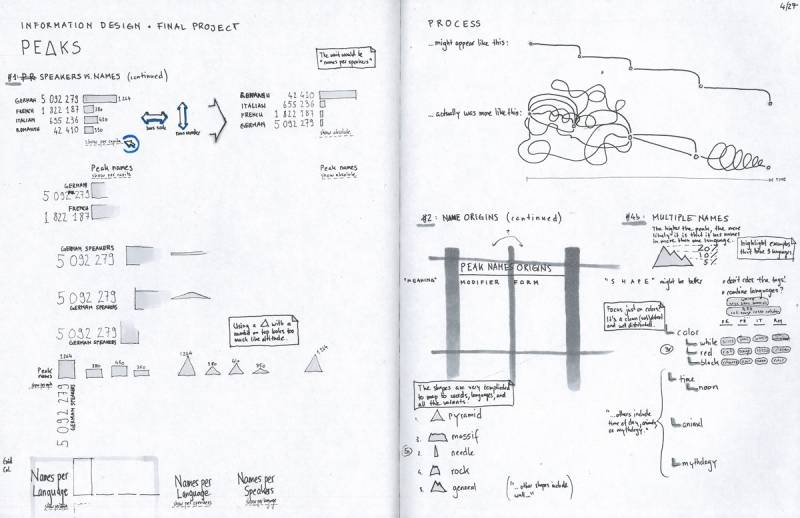 INFORMATION DESIGN • FINAL PROJECT
PEAKS
The unit would be
"names per speakers"
#1: SPEAKERS vs. NAMES (continued)
GERMAN 5 092 279 1264
FRENCH 1 822 187 380
ITALIAN 655 236 460
ROMANSH 42 410 350
show per capita
bars scale
rows reorder
ROMANSH 42 410
ITALIAN 655 236
FRENCH 1 822 187
GERMAN 5 092 279
show absolute
Peak names
show per capita
Peak names
show absolute
GERMAN
5 092 279
FRENCH
1 822 187
GERMAN SPEAKERS
5 092 279
5 092 279
GERMAN SPEAKERS
5 092 279
GERMAN SPEAKERS
Using a △ with a
number on top looks too
much like altitude.
Peak
names
1264
380
460
350
1264
380
460
350
1264
5 092 279
GERMAN
SPEAKERS
Names per
Language
Names per
Language
show per speakers
Names per
Speakers
show per language
4/27
PROCESS
...might appear like this:
...actually was more like this:
TIME
#2: NAME ORIGINS (continued)
PEAK NAMES ORIGINS
MODIFIER FORM
"MEANING"
"SHAPE" might be better
The shapes are very complicated
to map to words, languages, and
all the variants.
1. pyramid
3. massif
2. needle
4. rock
5. general
("...other shapes include
wall...")
#4b: MULTIPLE NAMES
The higher the peaks, the more
likely it is that it has names
in more than one language.
20%
10%
5%
Highlight examples
that have 3 languages.
Focus just on colors?
It's a clean subset
and well distributed.
• don't color the tags!
• combine languages?
DE FR IT RM
color
white
red
black
time
noon
animal
mythology
"...others include
time of day, animals
or mythology."